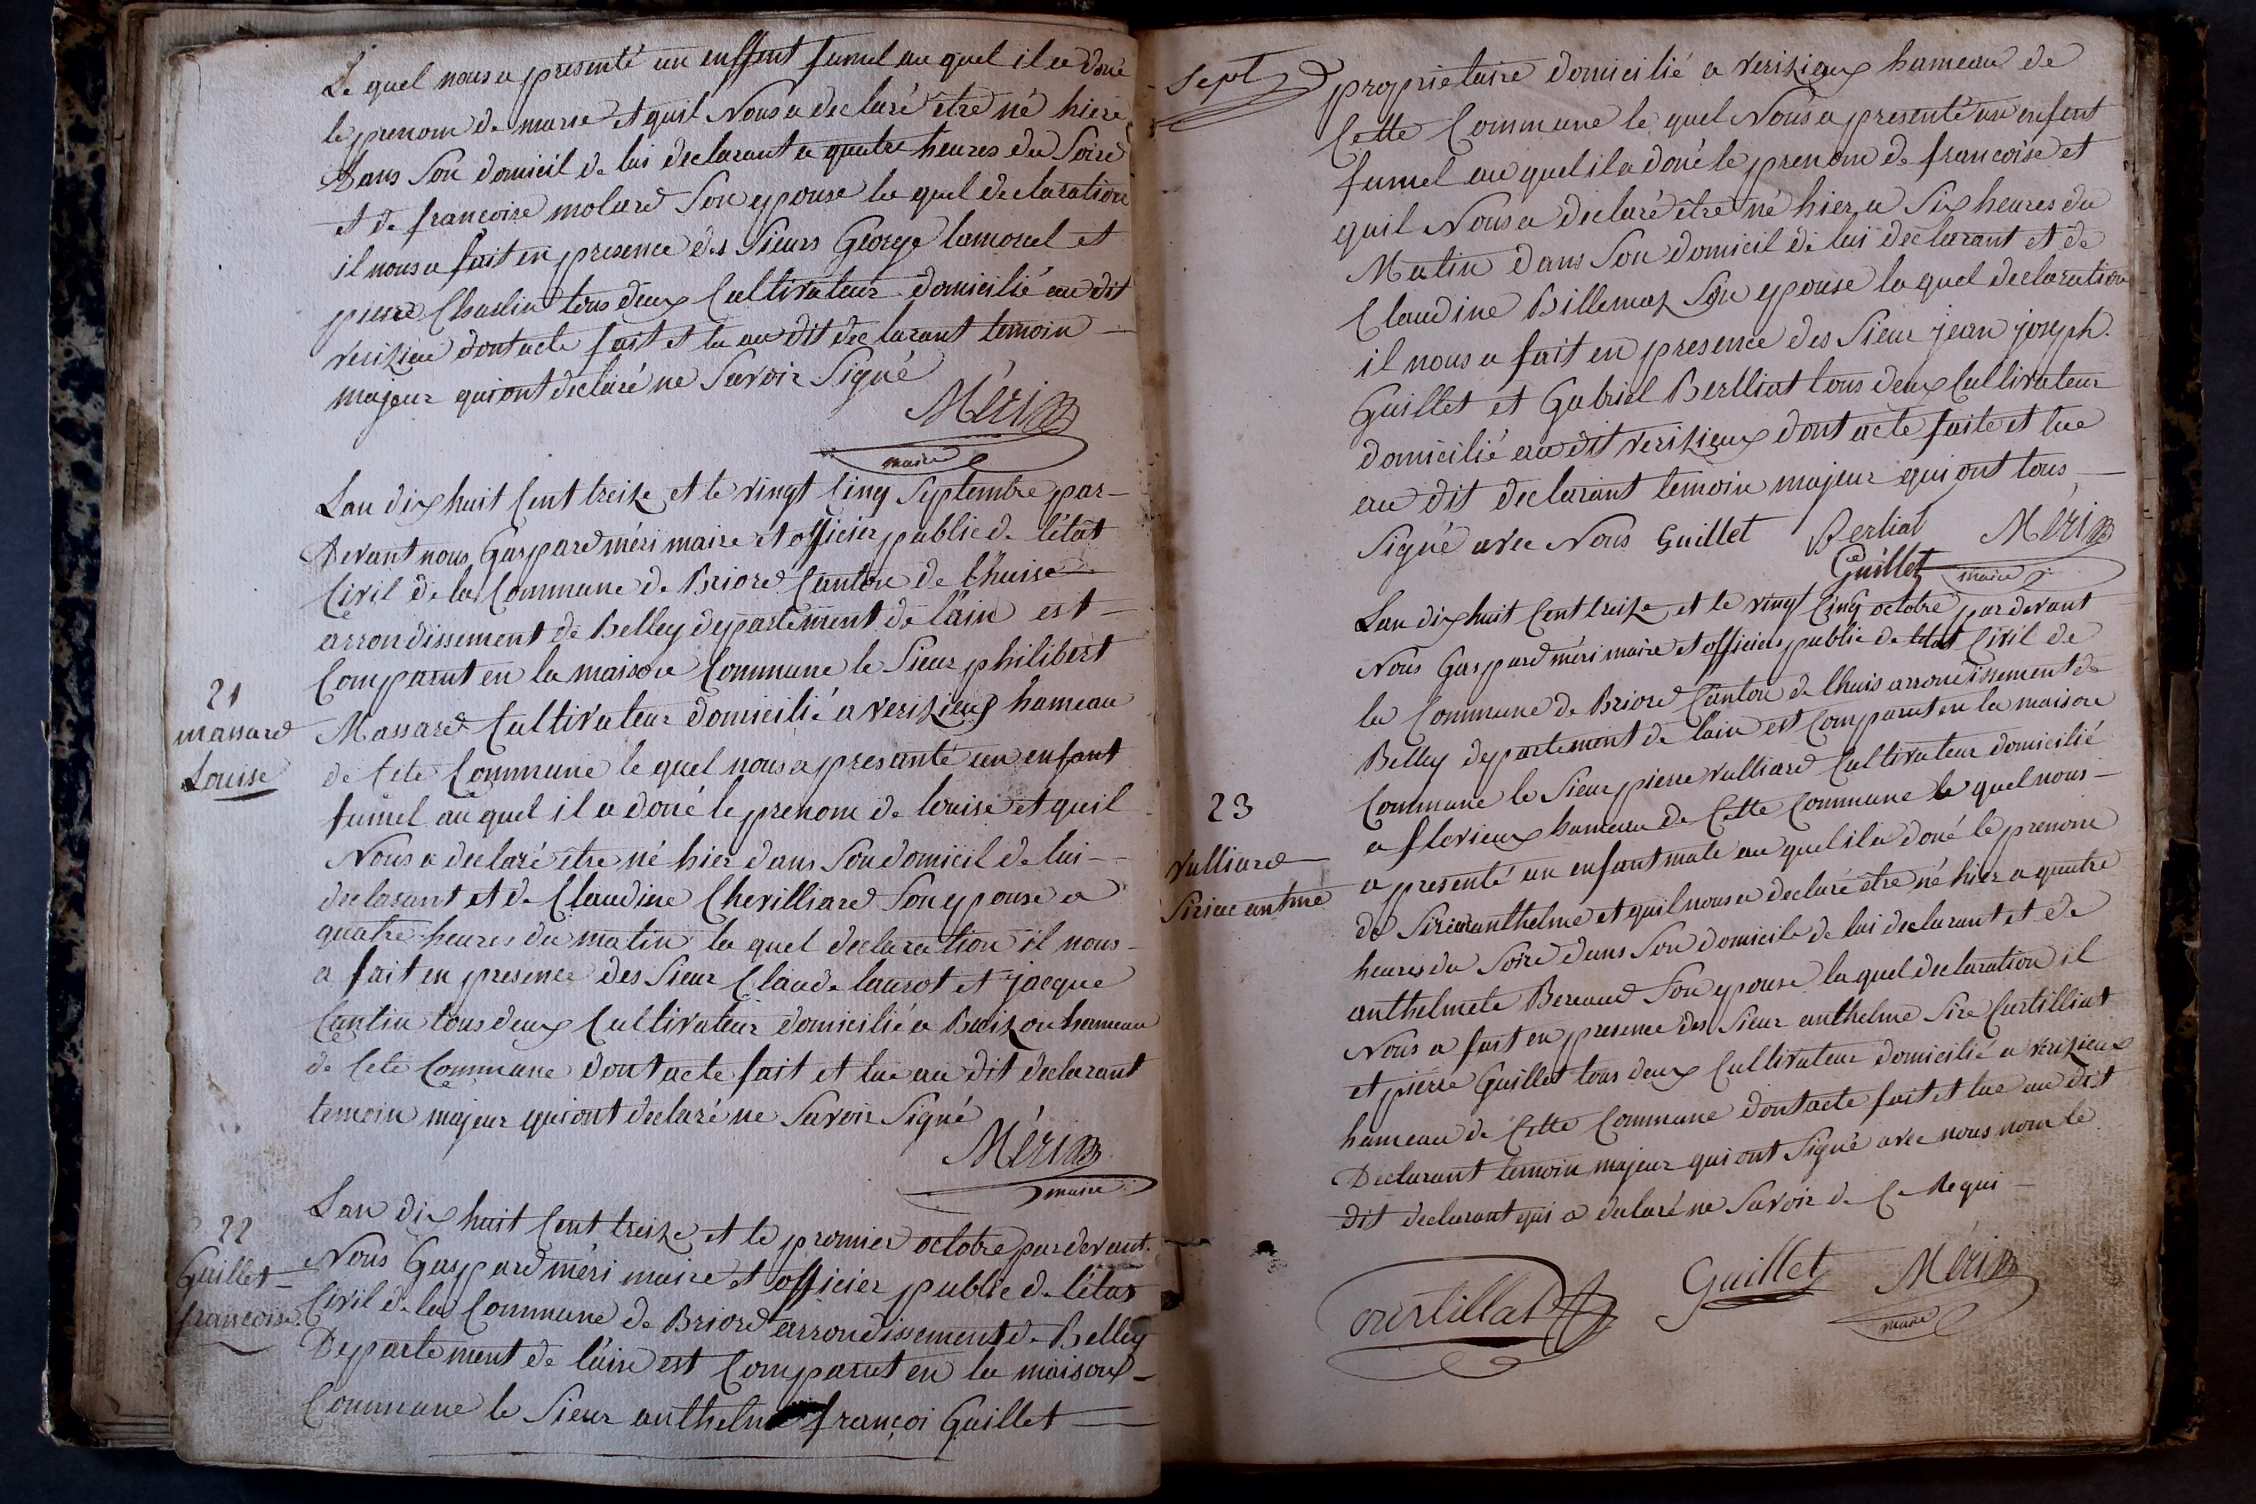 Le quel nous a presenté un enffent fumel au quel il a doné
le prenom de marie et quil Nous a declaré être né hiere
Dans Son domicil de lui declarant a quatre heures du Soire
et de francoise molard Son epouse la quel declaration
il nous a fait en presence des Sieurs George lamorel et
pierre Charlin tous deux Cultivateur domicilié au dit
verizieu dont acte fait et lu au dit declarant temoin
majeur qui ont declaré ne Savoir Signé
Méri
maire
Lan dix huit Cent treize et le vingt Cinq Septembre par
devant nous Gaspard méri maire et officier public de l'état
Civil de la Commune de Briord Canton de lhuise
arrondissement de Belley departement de lain est
Comparut en la maison Commune le Sieur philibert
21
massard
Louise
Massard Cultivateur domicilié a verizieux hameau
de Cete Commune le quel nous a presanté un enfant
fumel au quel il a doné le prenom de louise et quil
Nous a declaré être né hier dans Son domicil de lui
declarant et de Claudine Chevilliard Son epouse a
quatre heures du matin la quel declaration il nous
a fait en presence des Sieur Claude laurot et jacque
Cantin tous deux Cultivateur domicilié a Buizou hameau
de Cete Commune dont acte fait et lue au dit declarant
temoin majeur qui ont declaré ne Savoir Signé
Méri
maire
22
Guillet
francoise
Lan dix huit Cent treize et le premier octobre par devant
Nous Gaspard méri maire et officier public de l'état
Civil de la Commune de Briord arrondissement de Belley
Departement de lain est Comparut en la maison
Commune le Sieur anthelme françoi Guillet
Sept
propriétaire domicilié a verizieux hameau de
Cette Commune le quel Nous a presenté un enfent
fumel au quel il a doné le prenom de francoise et
quil Nous a declaré être né hier a Six heures du
Matin dans Son domicil de lui declarant et de
Claudine Billemaz Son epouse la quel declaration
il nous a fait en presence des Sieur jean joseph
Guillet et Gabriel Berlliat tous deux Cultivateur
domicilié au dit verizieux dont acte faite et lue
au dit declarant temoin majeur qui ont tous
Signé avec Nous Guillet Berliat Méri
Guillet maire
Lan dix huit Cent treize et le vingt Cinq octobre par devant
Nous Gaspard méri maire et officier public de létat Civil de
la Commune de Briord Canton de lhuis arrondissement de
Belley departement de lain est Comparut en la maison
Commune le Sieur pierre vulliard Cultivateur domicilié
23
vulliard
Siriac antme
a flevieux hameau de Cette Commune le quel nous
a presenté un enfant male au quel il a doné le prenom
de Siriacanthelme et quil nous a declaré être né hier a quatre
heures du Soire dans Son domicile de lui declarant et de
anthelmete Bereaud Son epouse la quel declaration il
Nous a fait en presence des Sieur anthelme Sire Curtilliat
et pierre Guillet tous deux Cultivateur domicilié a verizieux
hameau de Cette Commune dont acte fait et lue au dit
Declarant temoin majeur qui ont Signé avec nous nom le
dit declarant qui a declaré ne Savoir de Ce Requi
Curtillat Guillet Méri
maire